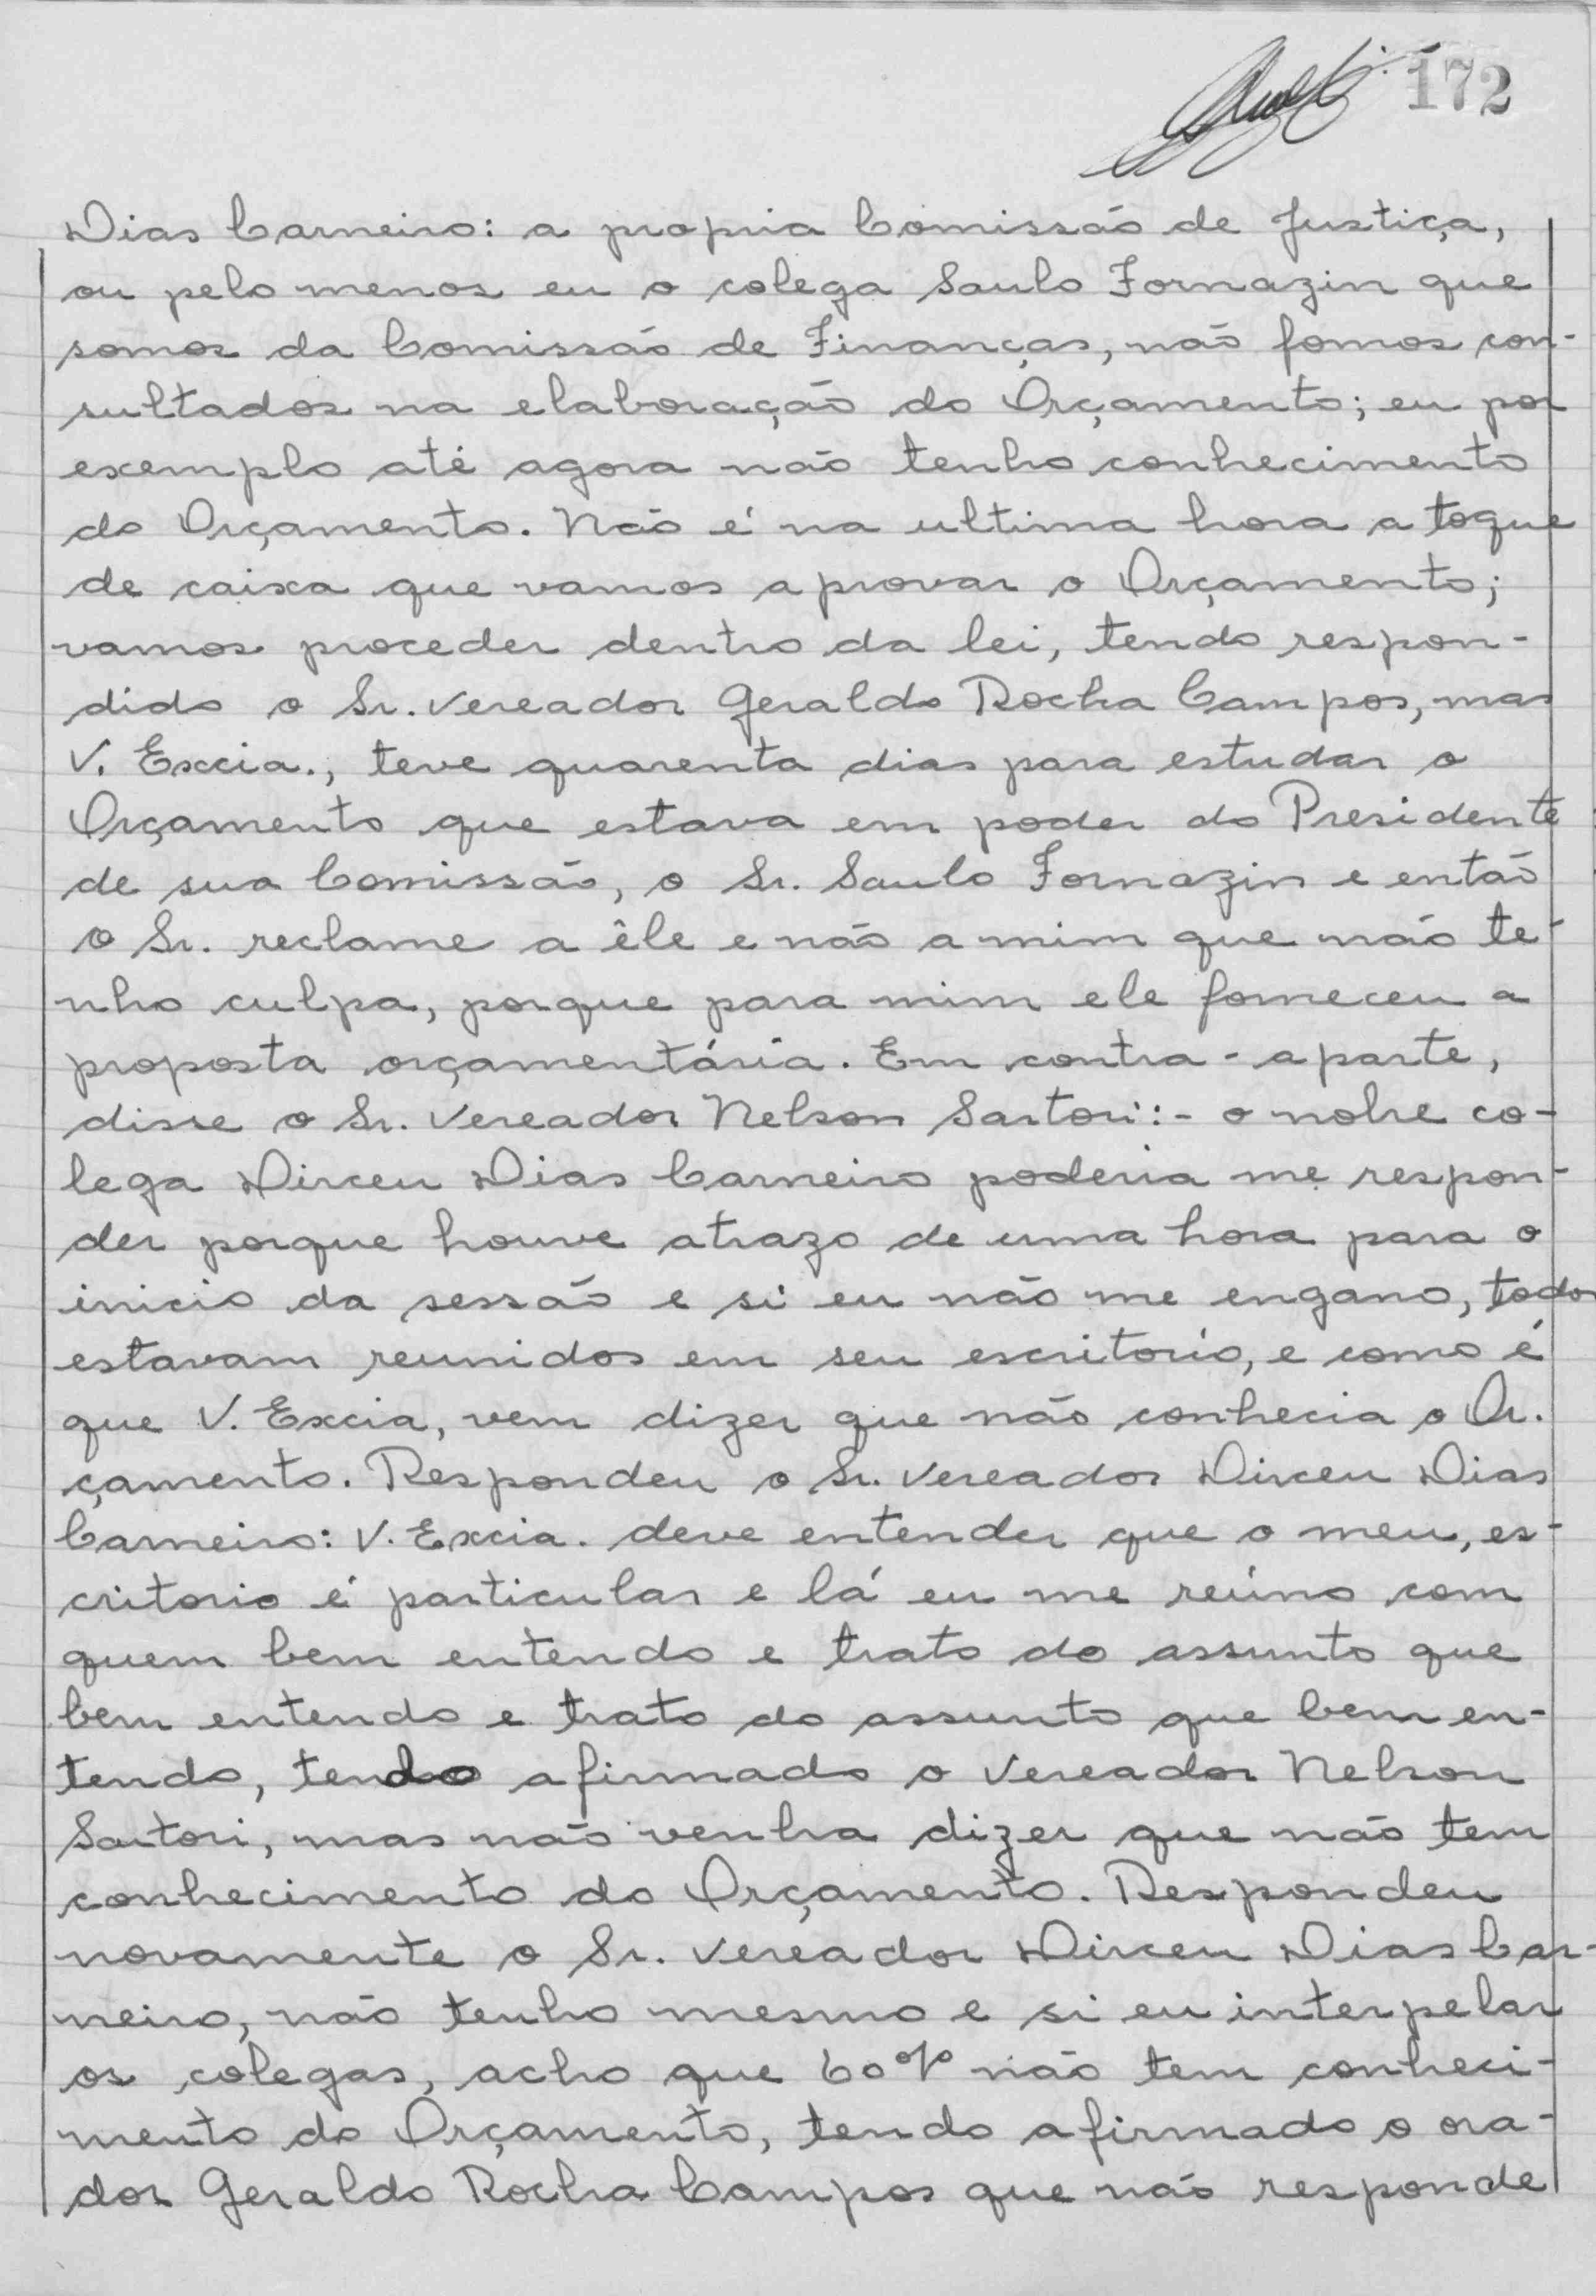 172
Dias Carneiro: a propria Comissão de Justiça,
ou pelo menos eu o colega Saulo Fornazin que
somos da Comissão de Finanças, não fomos con-
sultados na elaboração do Orçamento; eu por
exemplo até agora não tenho conhecimento
do Orçamento. Não é na ultima hora a toque
de caixa que vamos aprovar o Orçamento;
vamos proceder dentro da lei, tendo respon-
dido o Sr. Vereador Geraldo Rocha Campos, mas
V. Excia., teve quarenta dias para estudar o
Orçamento que estava em poder do Presidente
de sua Comissão, o Sr. Saulo Fornazin e então
o Sr. reclame a êle e não a mim que não te-
nho culpa, porque para mim ele forneceu a
proposta orçamentária. Em contra-aparte,
disse o Sr. Vereador Nelson Sartori:- o nobre co-
lega Dirceu Dias Carneiro poderia me respon-
der porque houve atrazo de uma hora para o
inicio da sessão e si eu não me engano, todos
estavam reunidos em seu escritorio, e como é
que V. Excia, vem dizer que não conhecia o Or.
çamento. Respondeu o Sr. Vereador Dirceu Dias
Carneiro: V. Excia. deve entender que o meu, es-
critorio é particular e lá eu me reúno com
quem bem entendo e trato do assunto que
bem entendo e trato do assunto que bem en-
tendo, tendo afirmado o Vereador Nelson
Sartori, mas não venha dizer que não tem
conhecimento do Orçamento. Respondeu
novamente o Sr. Vereador Dirceu Dias Car-
neiro, não tenho mesmo e si eu interpelar
os colegas, acho que 60% não tem conheci-
mento do Orçamento, tendo afirmado o ora-
dor Geraldo Rocha Campos que não responde